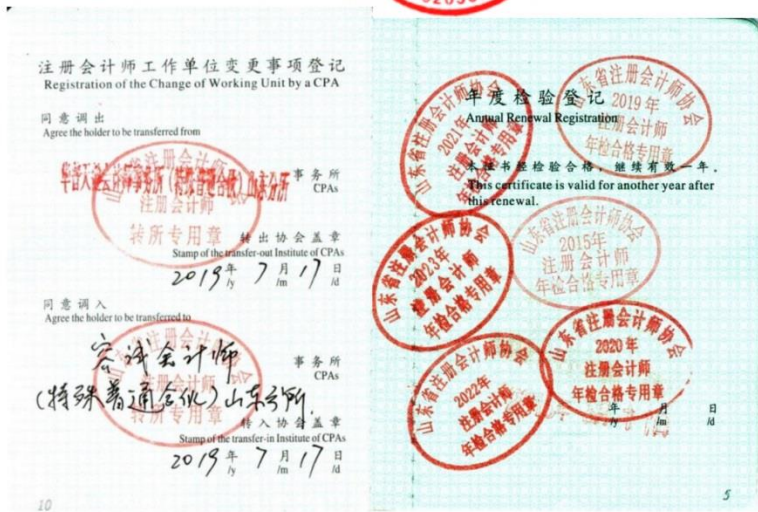 注册会计师工作单位变更事项登记
Registration of the Change of Working Unit by a CPA
同意调出
Agree the holder to be transferred from
山东分所
事务所
CPAs
注册会计师
转所专用章
转出协会盖章
Stamp of the transfer-out Institute of CPAs
2019年 7月 17日
/y /m /d
同意调入
Agree the holder to be transferred to
容诚会计师
事务所
CPAs
(特殊普通合伙)山东分所
注册会计师
转所专用章
转入协会盖章
Stamp of the transfer-in Institute of CPAs
2019年 7月 17日
/y /m /d
10
年度检验登记
Annual Renewal Registration
本证书经检验合格，继续有效一年。
This certificate is valid for another year after
this renewal.
山东省注册会计师协会
2021年
注册会计师
年检合格专用章
山东省注册会计师协会
2019年
注册会计师
年检合格专用章
山东省注册会计师协会
2023年
注册会计师
年检合格专用章
山东省注册会计师协会
2015年
注册会计师
年检合格专用章
山东省注册会计师协会
2022年
注册会计师
年检合格专用章
山东省注册会计师协会
2020年
注册会计师
年检合格专用章
年 月 日
/y /m /d
5